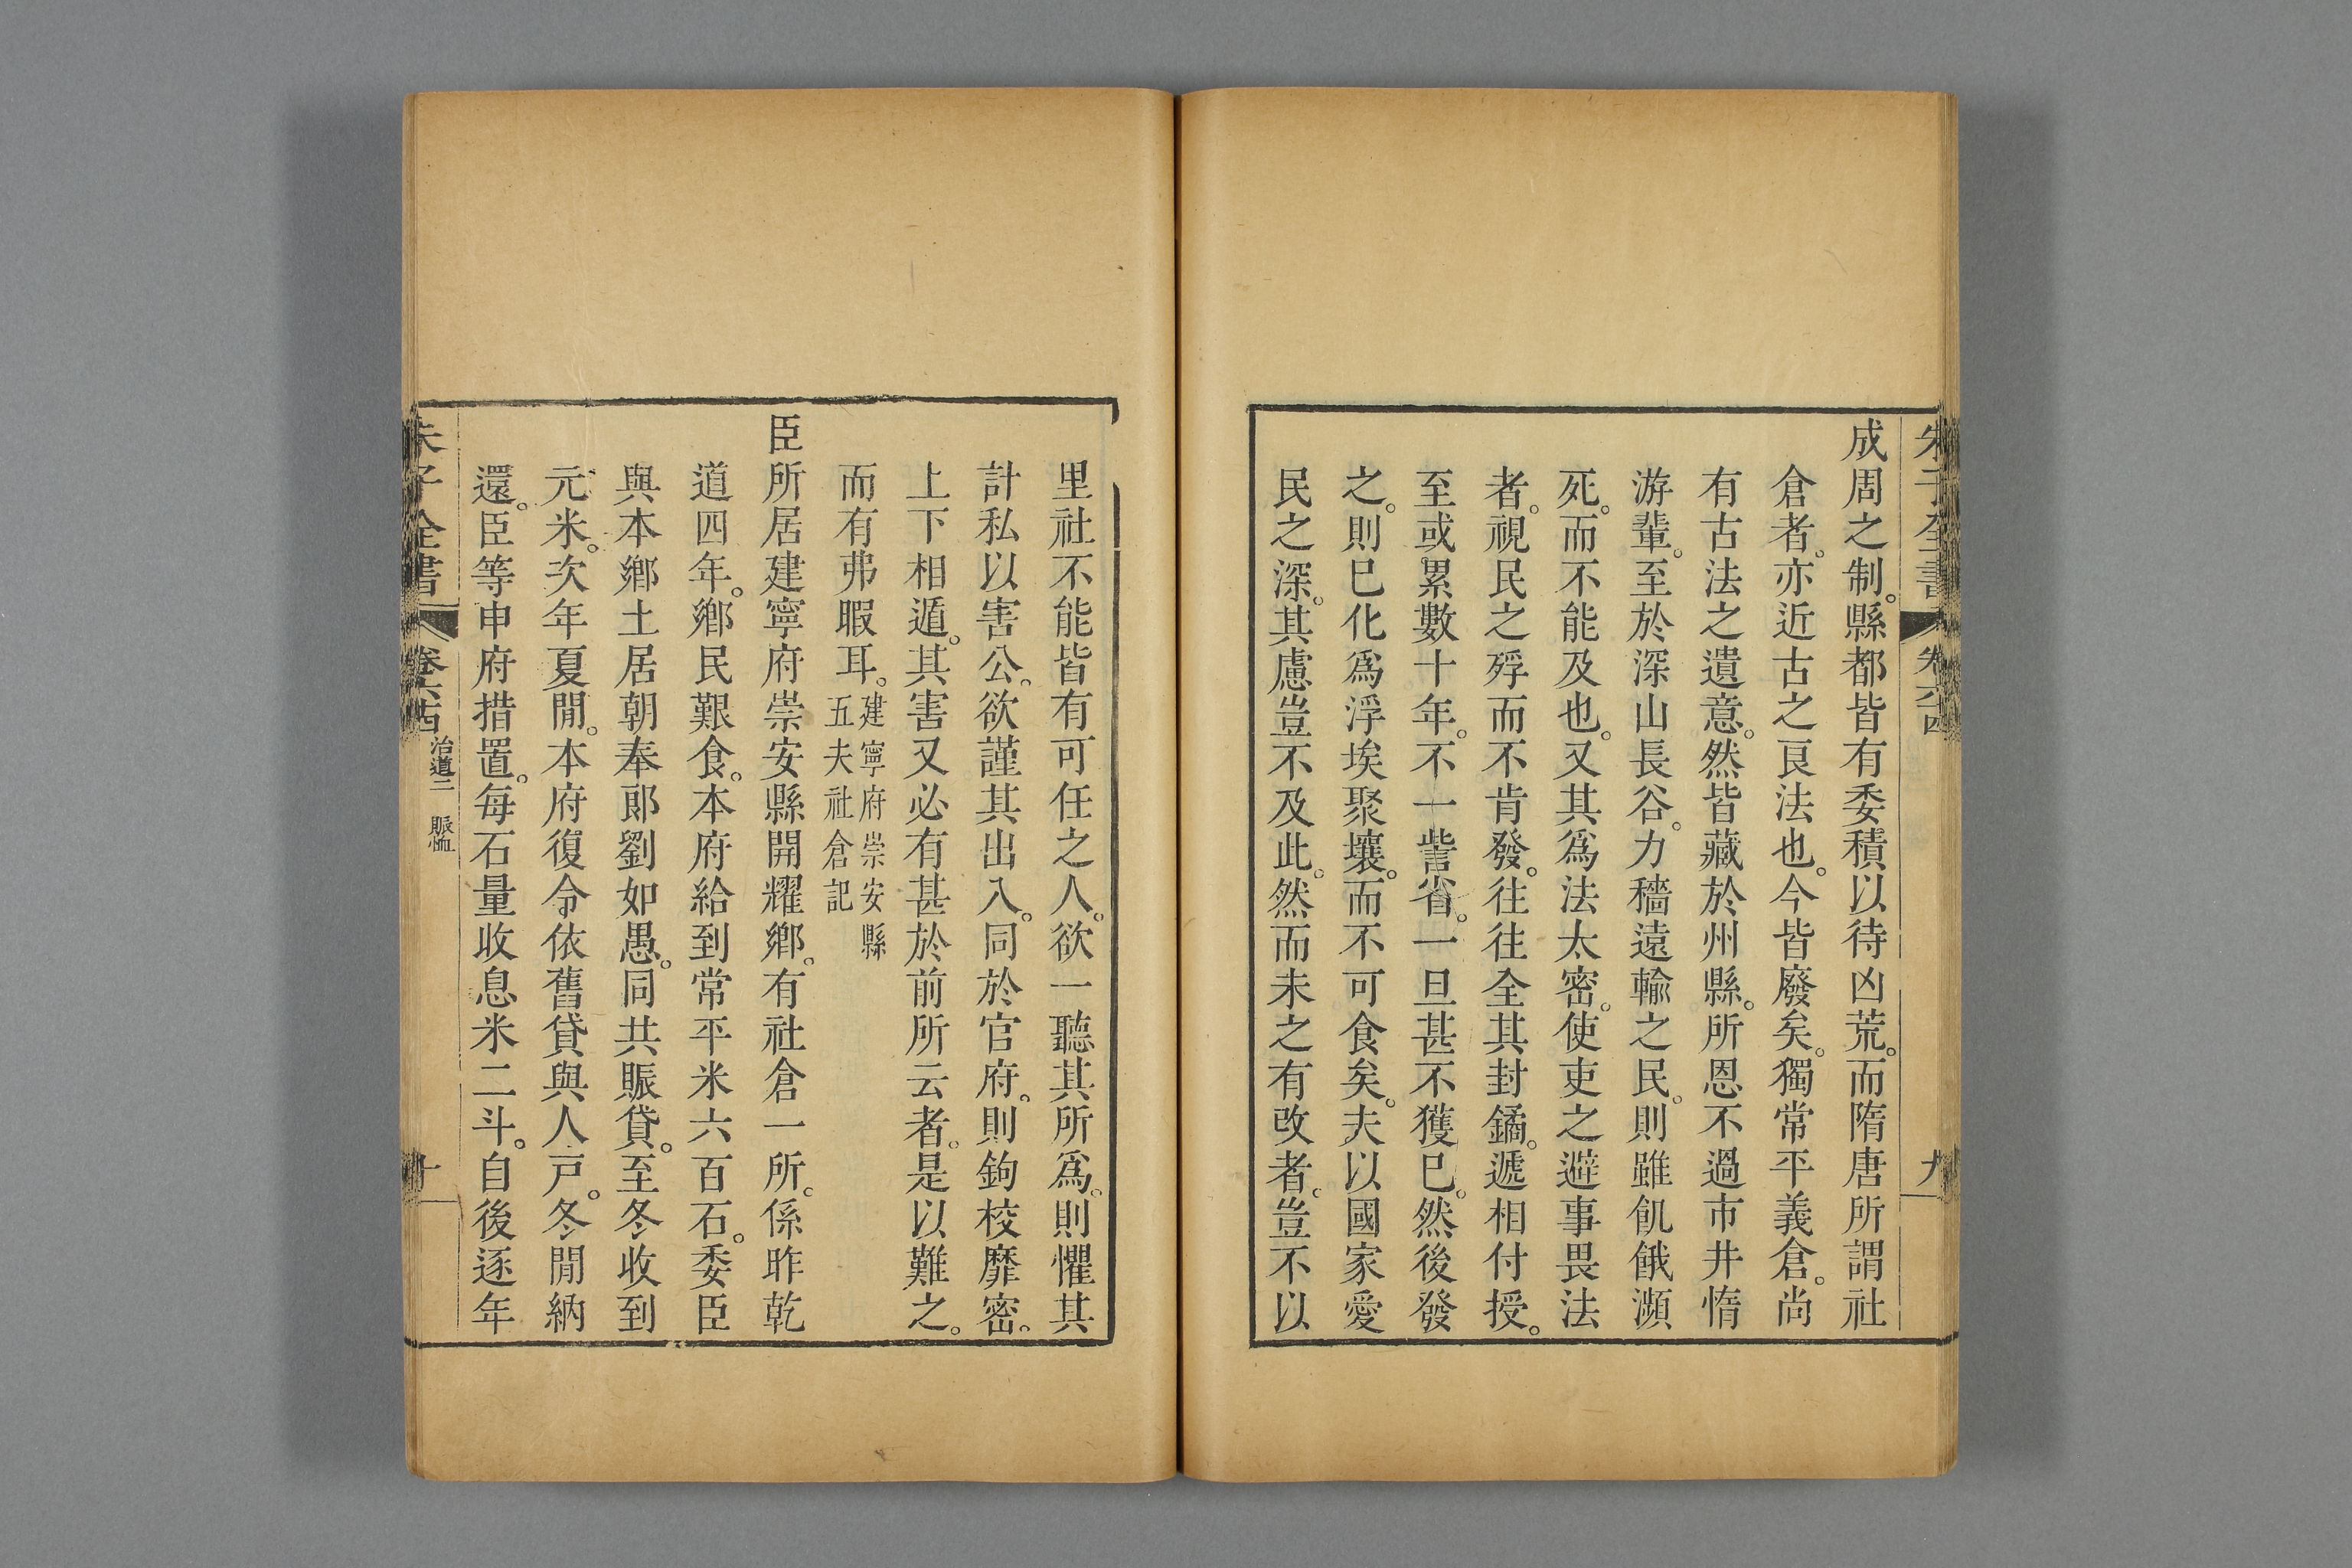 朱子全書 卷六十四 九
成周之制。縣都皆有委積以待凶荒。而隋唐所謂社
倉者。亦近古之良法也。今皆廢矣。獨常平義倉。尚
有古法之遺意。然皆藏於州縣。所恩不過市井惰
游輩。至於深山長谷。力穡遠輸之民。則雖飢餓瀕
死。而不能及也。又其爲法太密。使吏之避事畏法
者。視民之殍而不肯發。往往全其封鐍。遞相付授。
至或累數十年。不一訾省。一旦甚不獲已。然後發
之。則已化爲浮埃聚壤。而不可食矣。夫以國家愛
民之深。其慮豈不及此。然而未之有改者。豈不以
里社不能皆有可任之人。欲一聽其所爲。則懼其
計私以害公。欲謹其出入。同於官府。則鉤校靡密。
上下相遁。其害又必有甚於前所云者。是以難之。
而有弗暇耳。建寧府崇安縣
五夫社倉記
臣所居建寧府崇安縣開耀鄉。有社倉一所。係昨乾
道四年。鄉民艱食。本府給到常平米六百石。委臣
與本鄉土居朝奉郎劉如愚。同共賑貸。至冬收到
元米。次年夏閒。本府復令依舊貸與人戸。冬閒納
還。臣等申府措置。每石量收息米二斗。自後逐年
朱子全書 卷六十四 治道二 賑恤 十